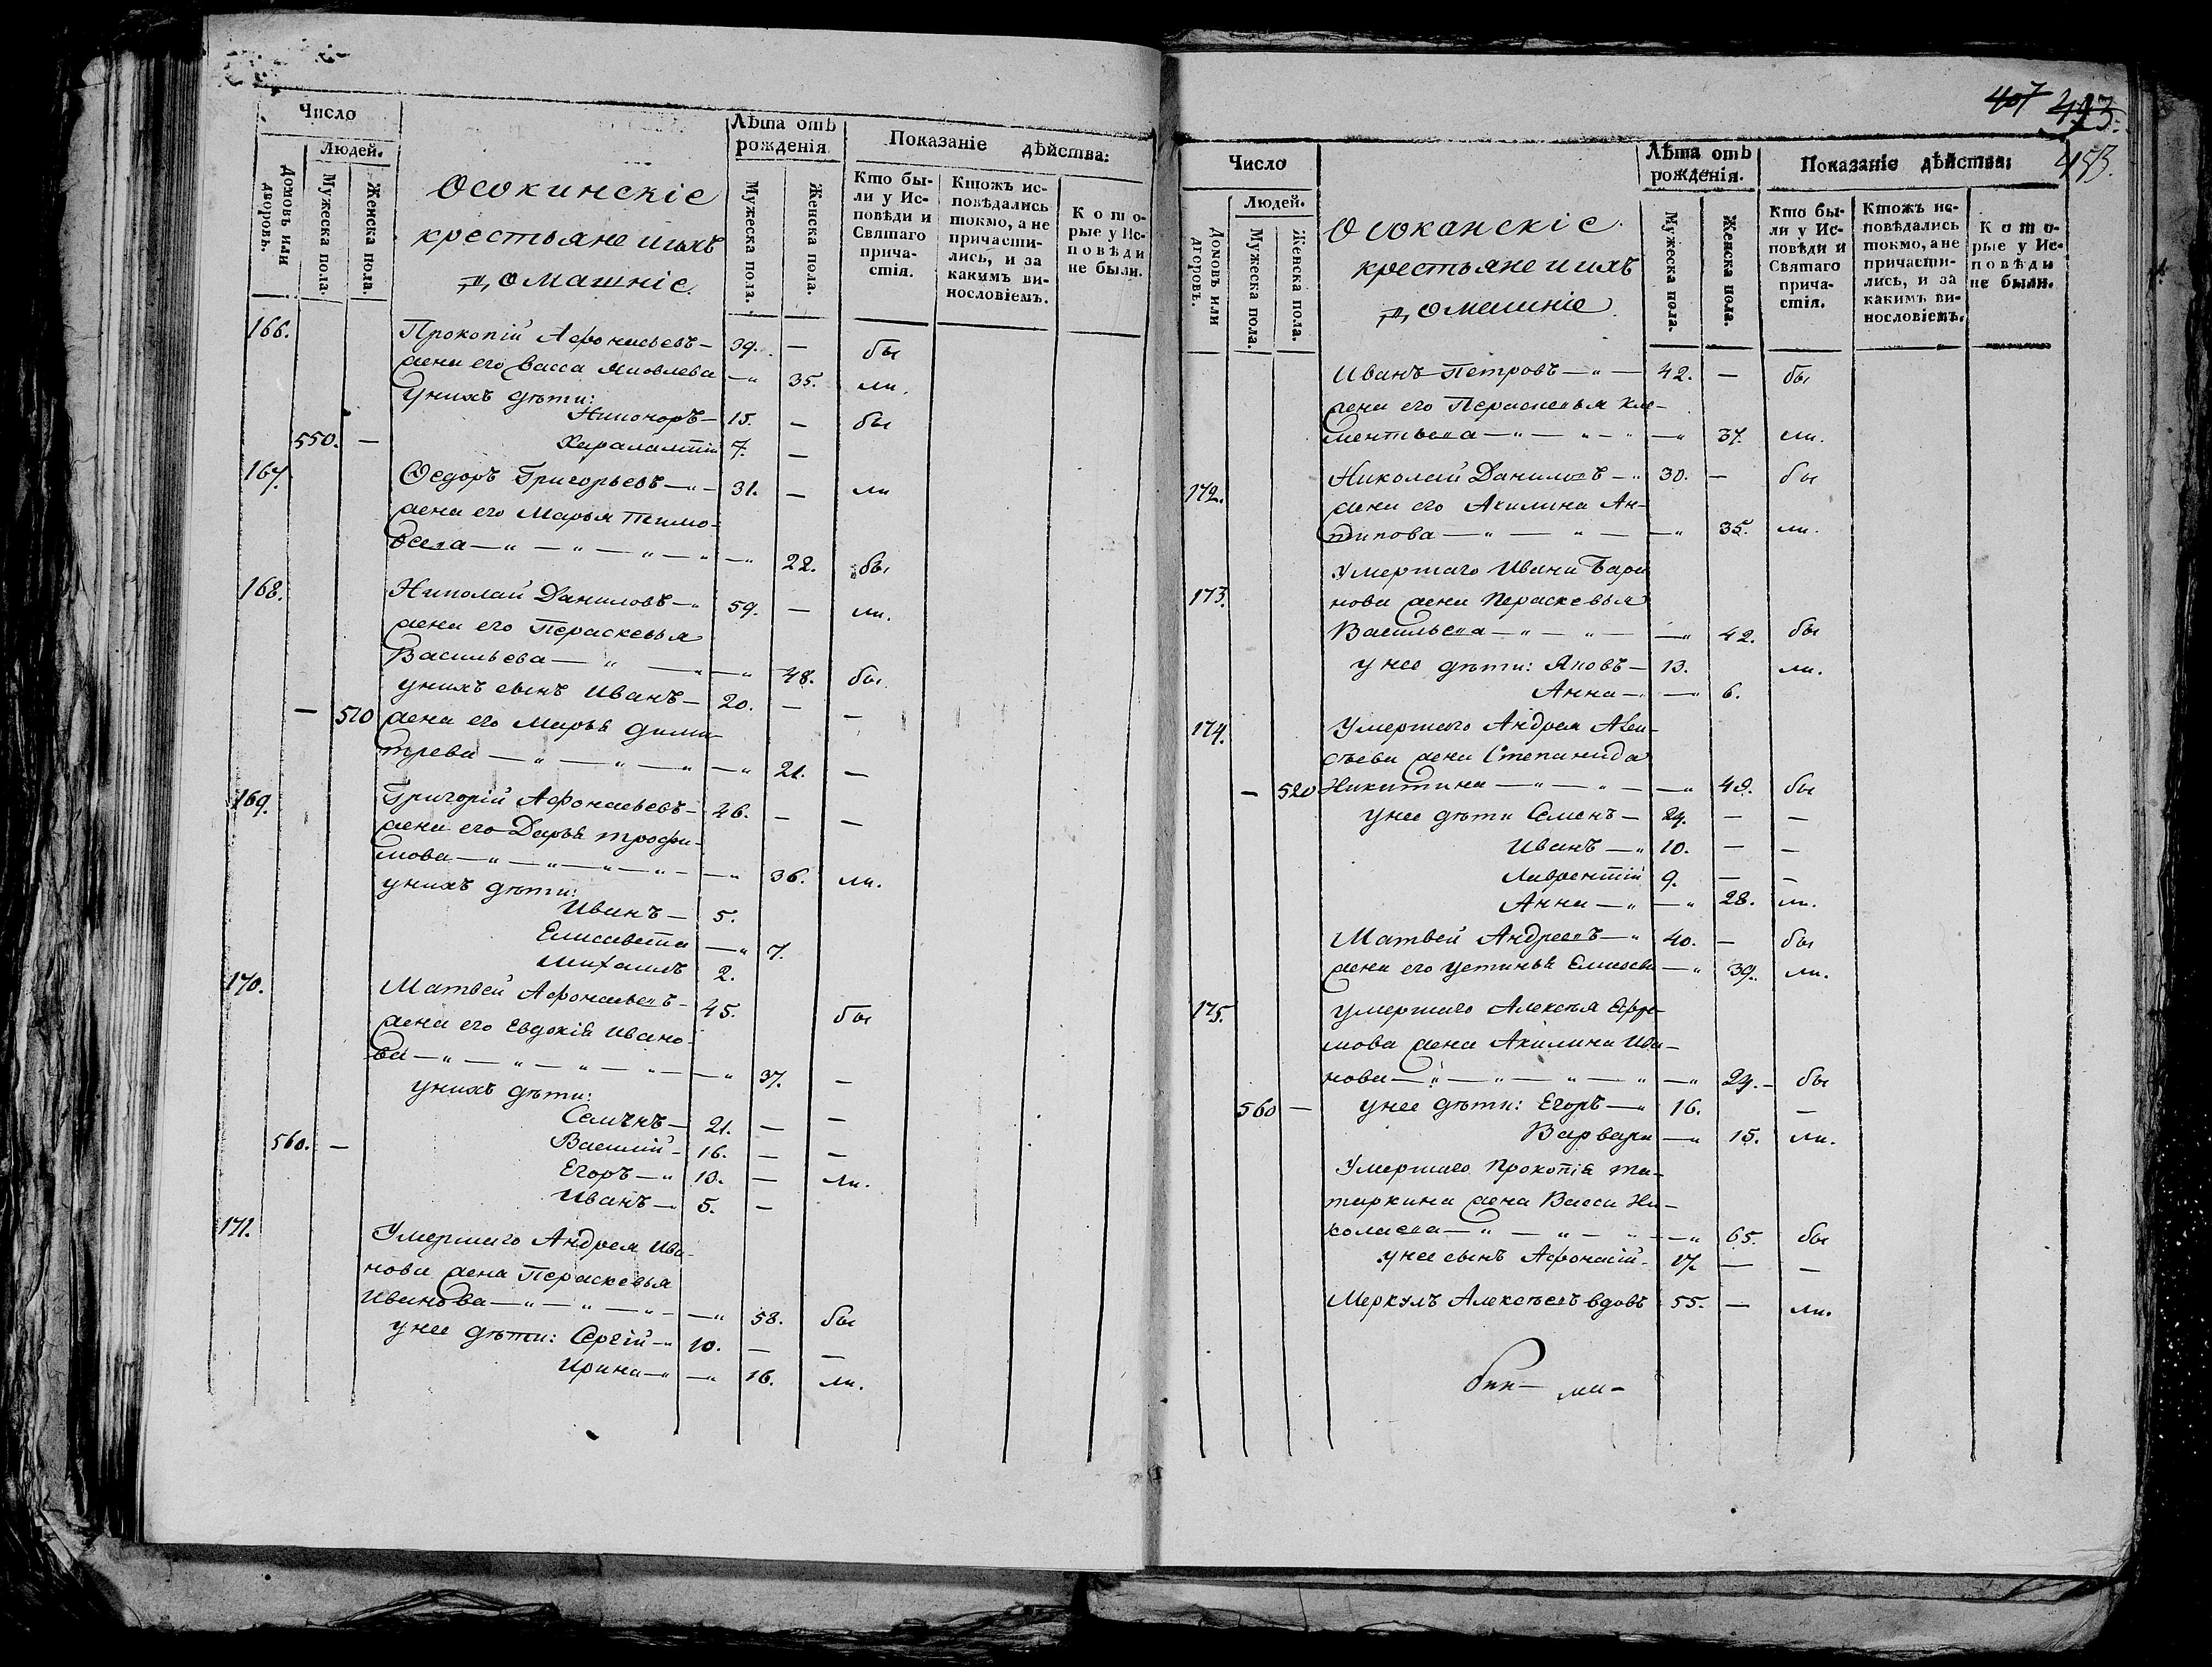 Число
Людей.
Домовъ или дворовъ.
Мужеска пола.
Женска пола.
Осокинскіе
крестьяне и ихъ
домашніе
Лѣта отъ
рожденія
Мужеска пола.
Женска пола.
Показаніе дѣйства:
Кто бы-
ли у Ис-
повѣди и
Святаго
прича-
стія.
Ктожъ ис-
повѣдались
токмо, а не
причасти-
лись, и за
какимъ ви-
нословіемъ.
Кото-
рые у Ис-
повѣди
не были.
166. Прокопій Афонасьевъ — 39. — бы
жена его Васса Яковлева — 35. ли.
у нихъ дѣти:
Никоноръ — 15. — бы
550. — Харалампій 7. —
167. Ѳедоръ Григорьевъ — 31. — ли
жена его Марья Тимо-
ѳеева — " — " — " — " — " 22. бы
168. Николай Даниловъ — " 59. — ли.
жена его Пераскевья
Васильева — " — " — " 48. бы
у нихъ сынъ Иванъ — 20. — —
— 510 жена его Марья Дими-
трева — " — " — " — " 21. —
169. Григорій Афонасьевъ — 26. — —
жена его Дарья Трофи-
мова — " — " — " — " — " 36. ли.
у нихъ дѣти:
Иванъ — 5.
Елисавета — " 7.
Михаилъ 2.
170. Матвей Афонасьевъ — 45. бы
жена его Евдокія Ивано-
ва — " — " — " — " — " 37. —
у нихъ дѣти:
Семенъ — 21. — —
560. — Василій — 16. — —
Егоръ — " 13. — ли.
Иванъ — 5. —
171. Умершаго Андрея Ива-
нова жена Пераскевья
Иванова — " — " — " — " 58. бы
у нее дѣти: Сергій — " 10. — —
Ирина — " — " 16. ли.
407 443.
453.
Число
Людей.
Домовъ или дворовъ.
Мужеска пола.
Женска пола.
Осоканскіе
крестьяне и ихъ
домашніе
Лѣта отъ
рожденія.
Мужеска пола.
Женска пола.
Показаніе дѣйства:
Кто бы-
ли у Ис-
повѣди и
Святаго
прича-
стія.
Ктожъ ис-
повѣдались
токмо, а не
причасти-
лись, и за
какимъ ви-
нословіемъ.
Кото-
рые у Ис-
повѣди
не были.
Иванъ Петровъ — " — 42. — бы
жена его Пераскевья Кле-
ментьева — " — " — " — " 37. ли.
172. Николай Даниловъ — " 30. — бы
жена его Акилина Ан-
типова — " — " — — " 35. ли.
Умершаго Ивана Бари
173. нова жена Пераскевья
Васильева — " — " — — " 42. бы
у нее дѣти: Яковъ — 13. ли.
Анна — " — " 6.
174. Умершаго Андрея Авси-
ѳьева жена Степанида
— 520 Никитина — " — " — — " 49. бы
у нее дѣти Семенъ — 24. — —
Иванъ — " 10. — —
Лаврентій 9. — —
Анна — " — " 28. ли.
Матвей Андреевъ — " 40. — бы
жена его Устинья Елисеева — " 39. ли.
175. Умершаго Алексѣя Ефре-
мова жена Акилина Ива-
нова — " — " — " — " — " 29. — бы
560 — у нее дѣти: Егоръ — " 16. —
Варвара — " 15. ли.
Умершаго Прокопія Та-
таркина жена Васса Ни-
колаева — " — " — " — " 65. бы
у нее сынъ Афонасій — 17. — —
Меркулъ Алексѣевъ вдовъ 55. — ли.